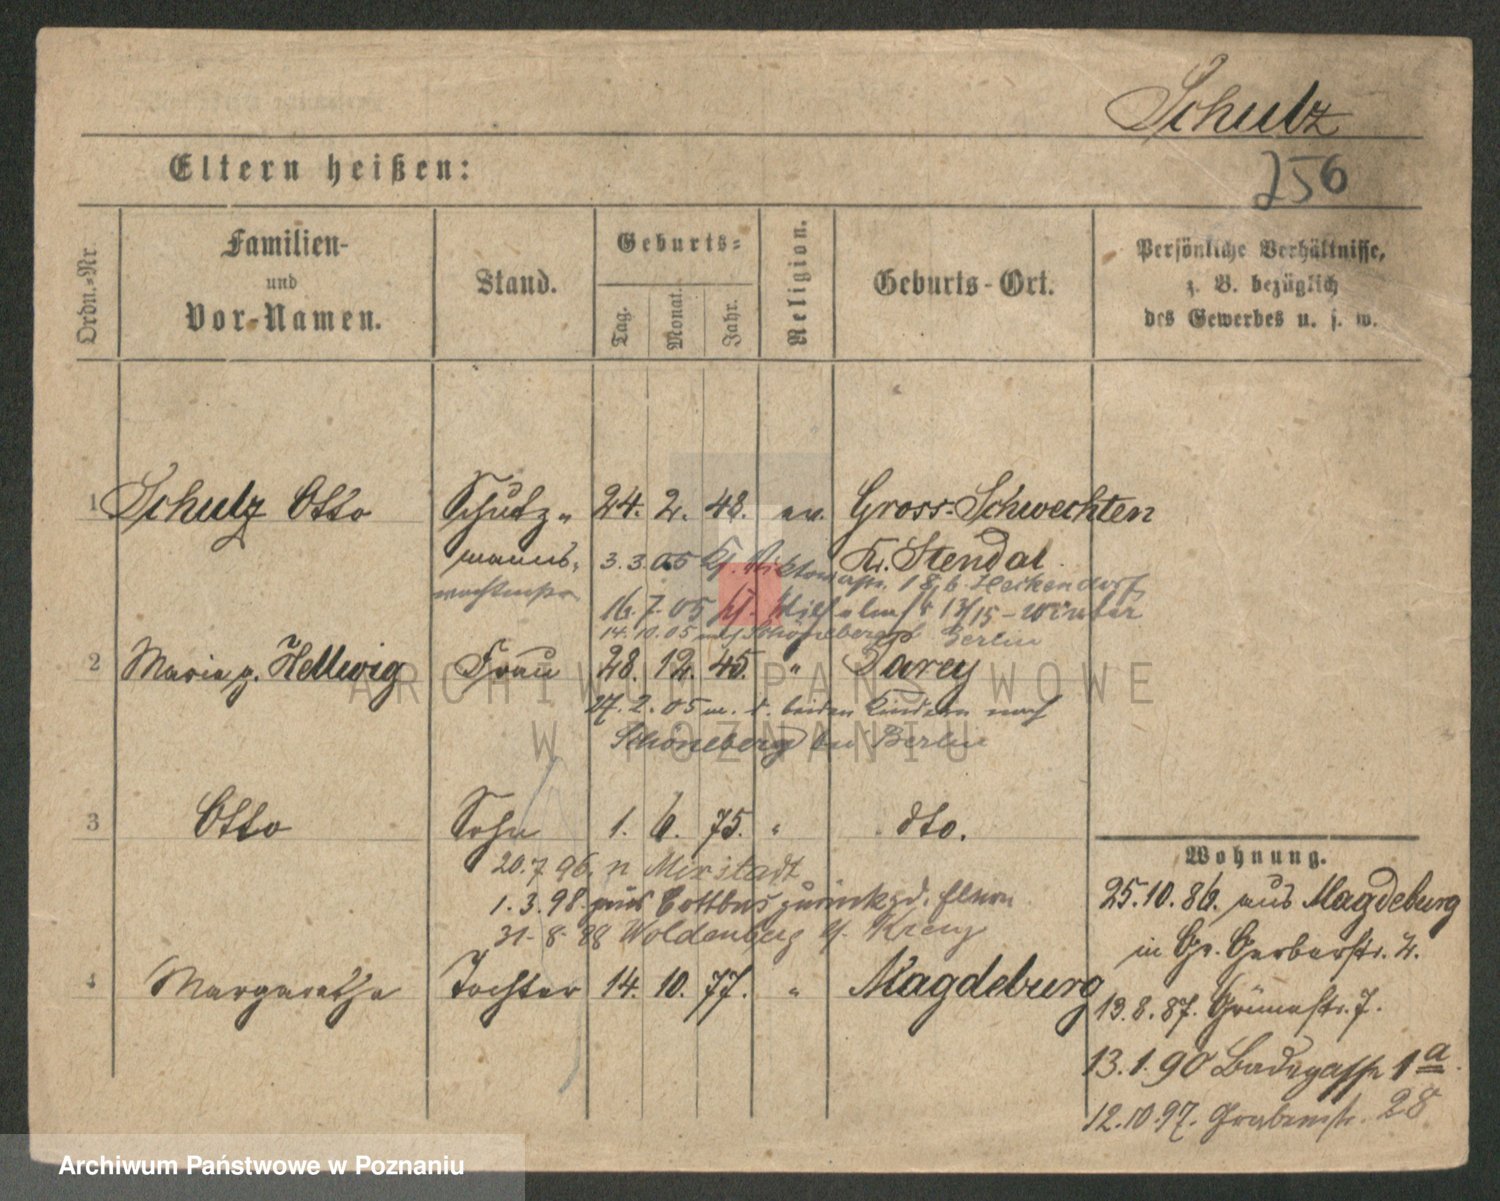 Schulz
Eltern heißen:
256
Ordn.-Nr.
Familien-
und
Vor-Namen.
Stand.
Geburts-
Tag.
Monat.
Jahr.
Religion.
Geburts-Ort.
Persönliche Verhältnisse,
z. B. bezüglich
des Gewerbes u. s. w.
1 Schulz Otto Schutz- 24. 2. 48. ev. Gross-Schwechten
manns- Kr. Stendal
wachtmstr.
3.3.05 Viktoriastr. 18 b. Heckendorf
16.7.05 Wilhelmstr 13/15 - Winter
14.10.05 nach Schöneberg b Berlin
2 Maria g. Hellwig Frau 28. 12. 45. " Parey
27.2.05 m. d. beiden Kindern nach
Schöneberg bei Berlin
3 Otto Sohn 1. 6. 75. " dto.
20.7.96. n Mixstadt
1.3.98 aus Cottbus zurück Eltern
31.8.98 Woldenberg Kreuz
4 Margarethe Tochter 14. 10. 77. " Magdeburg
Wohnung.
25.10.86. aus Magdeburg
in Gr. Gerberstr. 4.
19.8.87. Grünestr. 7.
13.1.90 Badegasse 1a
12.10.97. Grabenstr. 28
ARCHIWUM PAŃSTWOWE
W POZNANIU
Archiwum Państwowe w Poznaniu